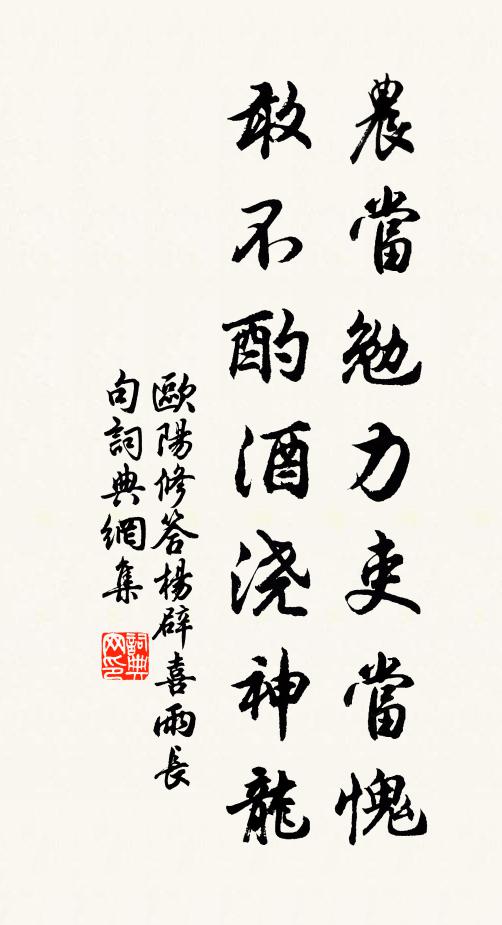 農當勉力吏當愧
敢不酌酒浇神龍
歐陽修答楊辟喜雨長
句詞典網集
詞典
网印